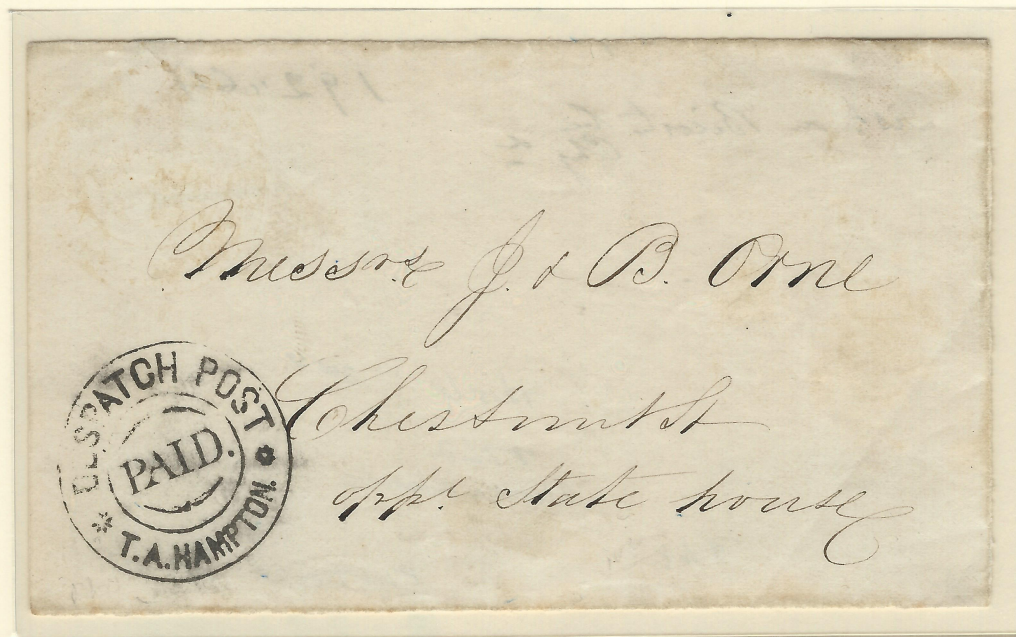 Messrs J. & B. Orne
Chestnut St
opp. State house
DESPATCH POST
PAID.
T.A. HAMPTON.